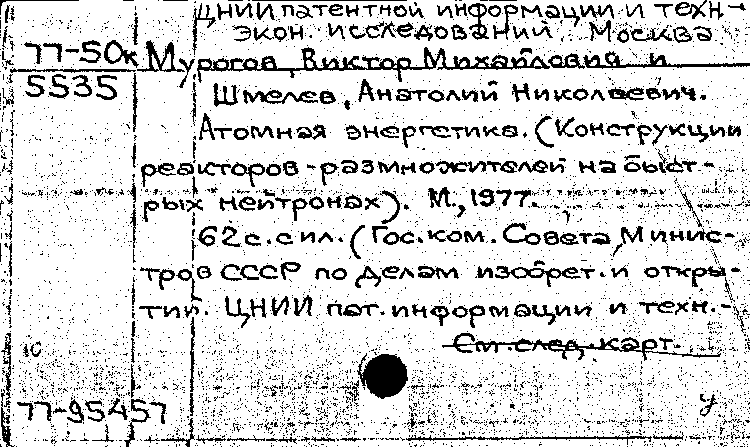 ЦНИИ патентной информации и техн-
экон. исследований. Москва
77-50к Мурогов, Виктор Михайлович и
5535 Шмелев, Анатолий Николаевич.
Атомная энергетика. (Конструкции
реакторов-размножителей на быст-
рых нейтронах). М., 1977.
62 с. с ил. (Гос. ком. Совета Минис-
тров СССР по делам изобрет. и откры-
тий. ЦНИИ пат. информации и техн.-
См. след. карт.
10
77-95457
у